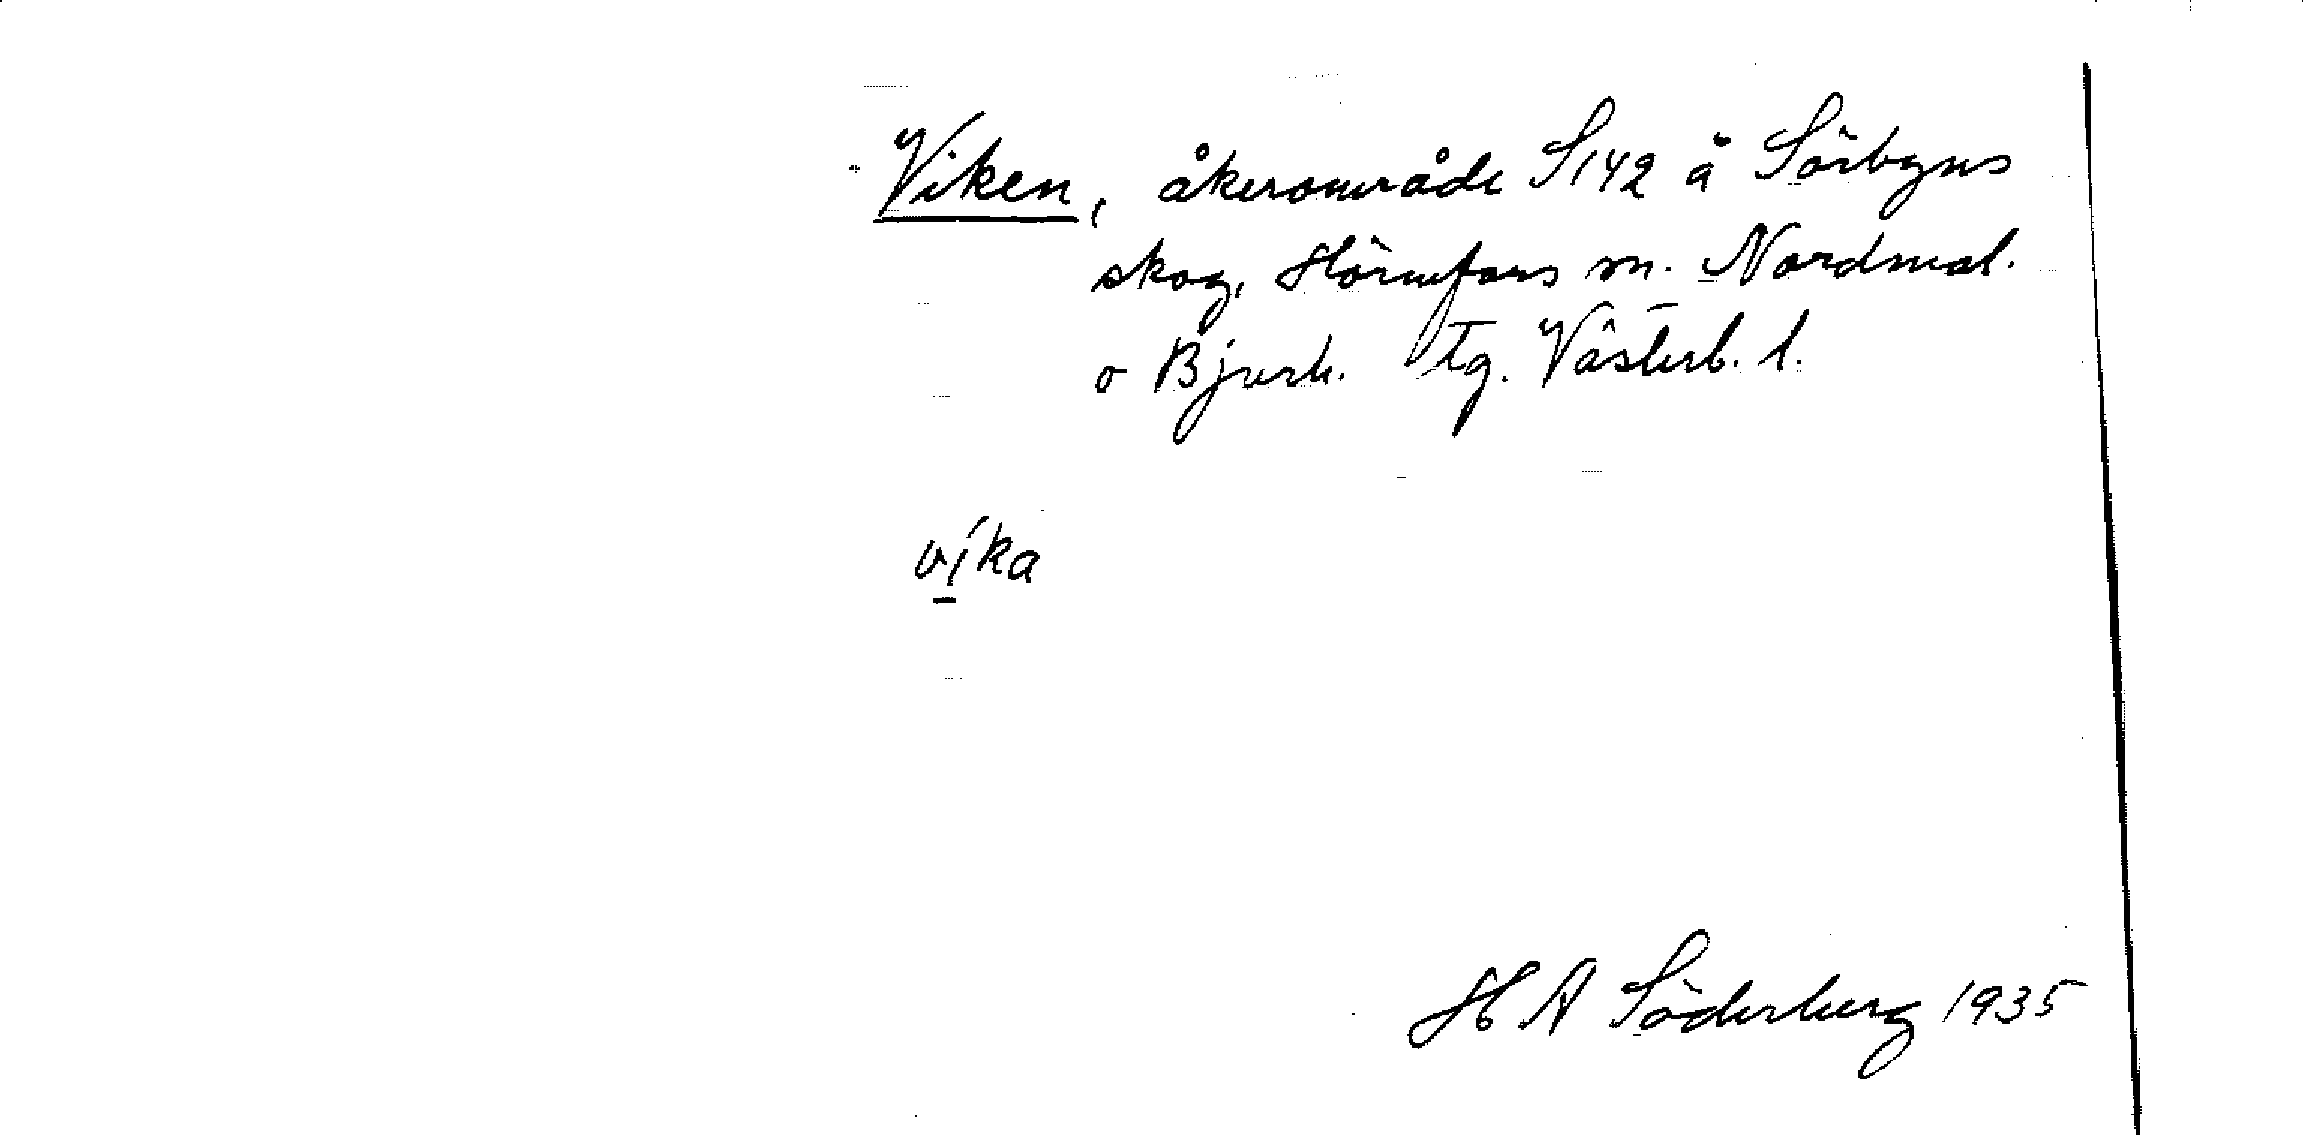 Viken, åkerområde S142 å Sörbyns
skog, Hörnefors m. Nordmal.
o Bjurh. tg. Västerb. l.
víka
H A Söderberg 1935